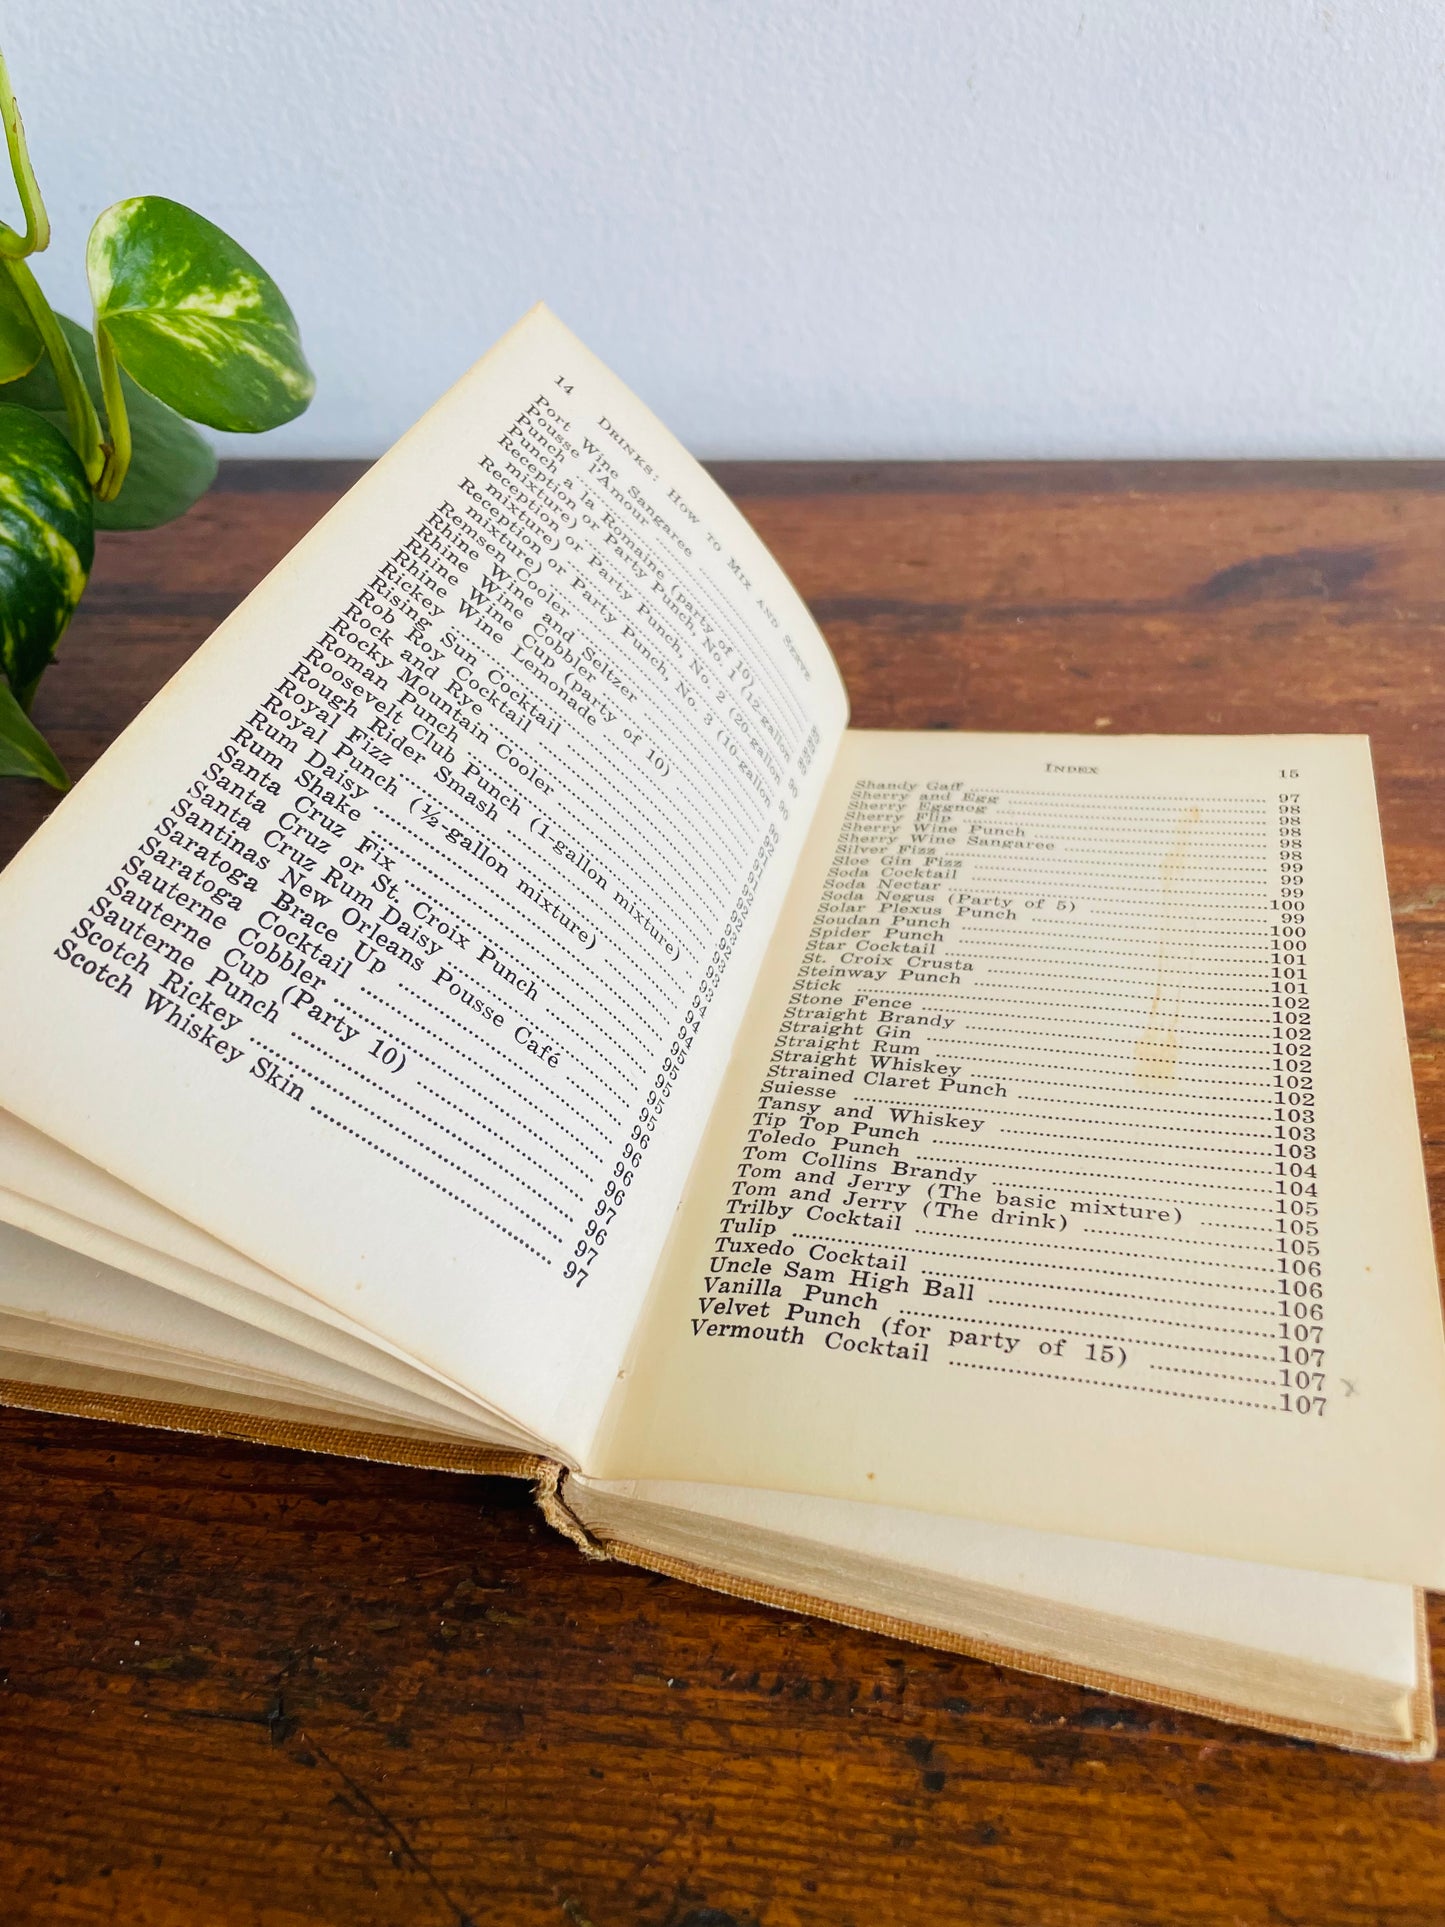 14 Drinks: How to Mix and Serve
Port Wine Sangaree
Pousse l'Amour
Punch
Punch a la Romaine (party of 10)
Reception or Party Punch, No. 1 (12-gallon
mixture)
Reception or Party Punch, No. 2 (20-gallon
mixture)
Reception or Party Punch, No. 3 (10-gallon
mixture)
Remsen Cooler
Rhine Wine and Seltzer
Rhine Wine Cobbler
Rhine Wine Cup (party of 10)
Rhine Wine Lemonade
Rickey
Rising Sun Cocktail
Rob Roy Cocktail
Rock and Rye
Rocky Mountain Cooler
Roman Punch
Roosevelt Club Punch (1-gallon mixture)
Rough Rider Smash
Royal Fizz
Royal Punch (½-gallon mixture)
Rum Daisy
Rum Shake
Santa Cruz Fix
Santa Cruz or St. Croix Punch
Santa Cruz Rum Daisy
Santinas New Orleans Pousse Café
Saratoga Brace Up 96
Saratoga Cocktail 96
Sauterne Cobbler 96
Sauterne Cup (Party 10) 97
Sauterne Punch 96
Scotch Rickey 97
Scotch Whiskey Skin 97
Index 15
Shandy Gaff 97
Sherry and Egg 98
Sherry Eggnog 98
Sherry Flip 98
Sherry Wine Punch 98
Sherry Wine Sangaree 98
Silver Fizz 99
Sloe Gin Fizz 99
Soda Cocktail 99
Soda Nectar 100
Soda Negus (Party of 5) 99
Solar Plexus Punch 100
Soudan Punch 100
Spider Punch 101
Star Cocktail 101
St. Croix Crusta 101
Steinway Punch 102
Stick 102
Stone Fence 102
Straight Brandy 102
Straight Gin 102
Straight Rum 102
Straight Whiskey 102
Strained Claret Punch 103
Suiesse 103
Tansy and Whiskey 103
Tip Top Punch 104
Toledo Punch 104
Tom Collins Brandy 105
Tom and Jerry (The basic mixture) 105
Tom and Jerry (The drink) 105
Trilby Cocktail 106
Tulip 106
Tuxedo Cocktail 106
Uncle Sam High Ball 107
Vanilla Punch 107
Velvet Punch (for party of 15) 107
Vermouth Cocktail 107